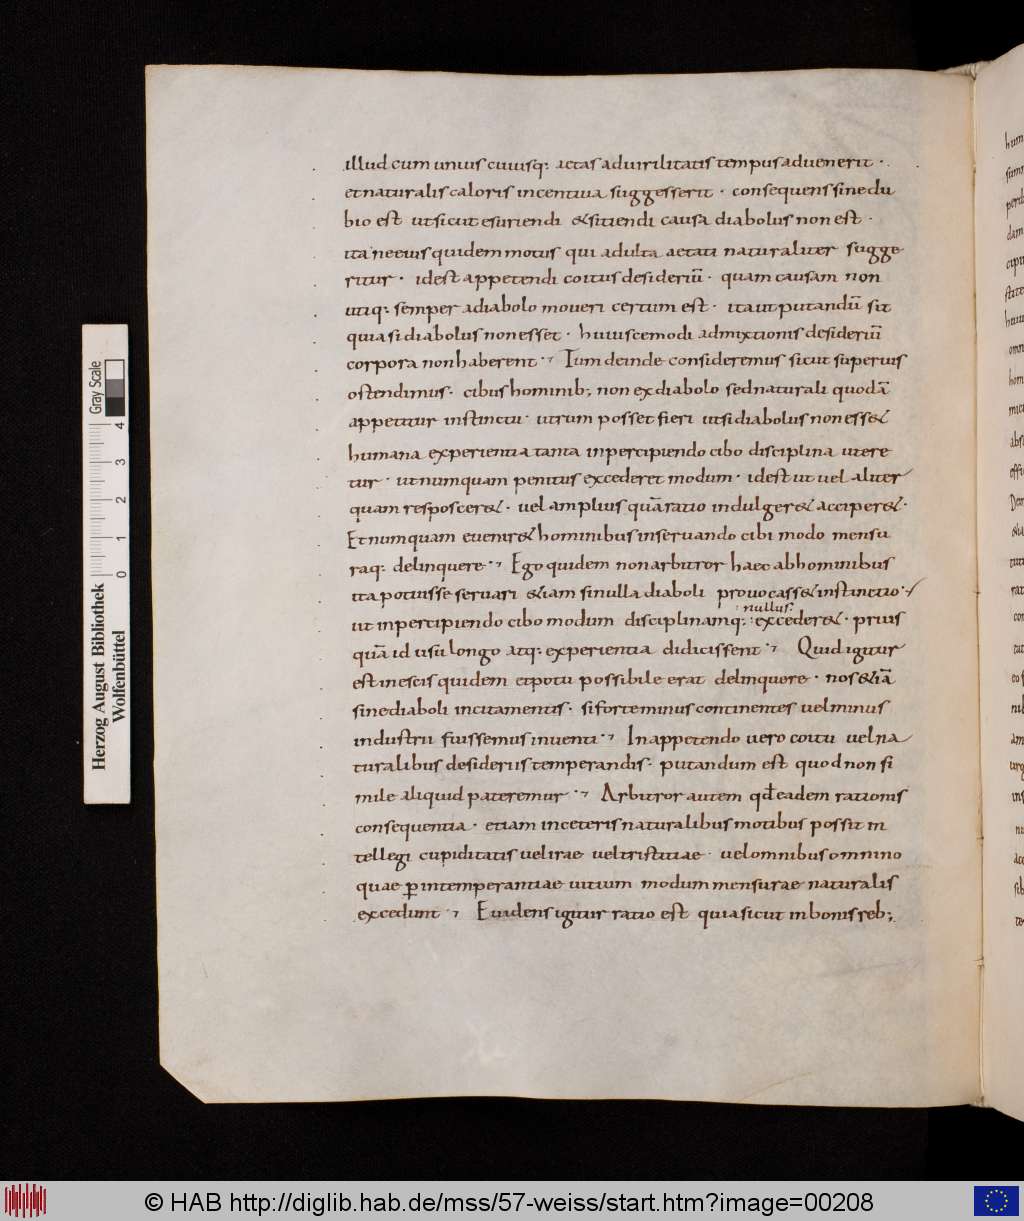 illud cum unius cuiusq: aetas ad uirilitatis tempus aduenerit ·
et naturalis caloris incentiua suggesserit · consequens sine du
bio est ut sicut esuriendi & sitiendi causa diabolus non est ·
ita ne eius quidem motus qui adulta aetati naturaliter sugge
ritur · id est appetendi coitus desideriū · quam causam non
utiq: semper a diabolo moueri certum est · ita ut putandū sit
quia si diabolus non esset · huiuscemodi admixtionis desideriū
corpora non haberent · Tum deinde consideremus sicut superius
ostendimus · cibus hominib; non ex diabolo sed naturali quodā
appetitur instinctu · utrum posset fieri ut si diabolus non ess&
humana experientia tanta in percipiendo cibo disciplina utere
tur · ut numquam penitus excederet modum · id est ut uel aliter
quam res poscer& · uel amplius quā ratio indulger& acciper& ·
Et numquam euenir& hominibus in seruando cibi modo mensu
raq: delinquere · Ego quidem non arbitror haec ab hominibus
ita potuisse seruari &iam si nulla diaboli prouocass& instinctio ·
nullus
ut in percipiendo cibo modum disciplinamq: exceder& · prius
quā id usu longo atq: experientia didicissent · Quid igitur
est in escis quidem et potu possibile erat delinquere · nos &iā
sine diaboli incitamentis · si forte minus continentes uel minus
industrii fuissemus inuenti · In appetendo uero coitu uel na
turalibus desideriis temperandis · putandum est quod non si
mile aliquid pateremur · Arbitror autem qđ eadem rationis
consequentia · etiam in ceteris naturalibus motibus possit in
tellegi cupiditatis uel irae uel tristitiae · uel omnibus omnino
quae ꝑ intemperantiae uitium modum mensurae naturalis
excedunt · Euidens igitur ratio est quia sicut in bonis reb;
Herzog August Bibliothek
Wolfenbüttel
Gray Scale
0 1 2 3 4
© HAB http://diglib.hab.de/mss/57-weiss/start.htm?image=00208